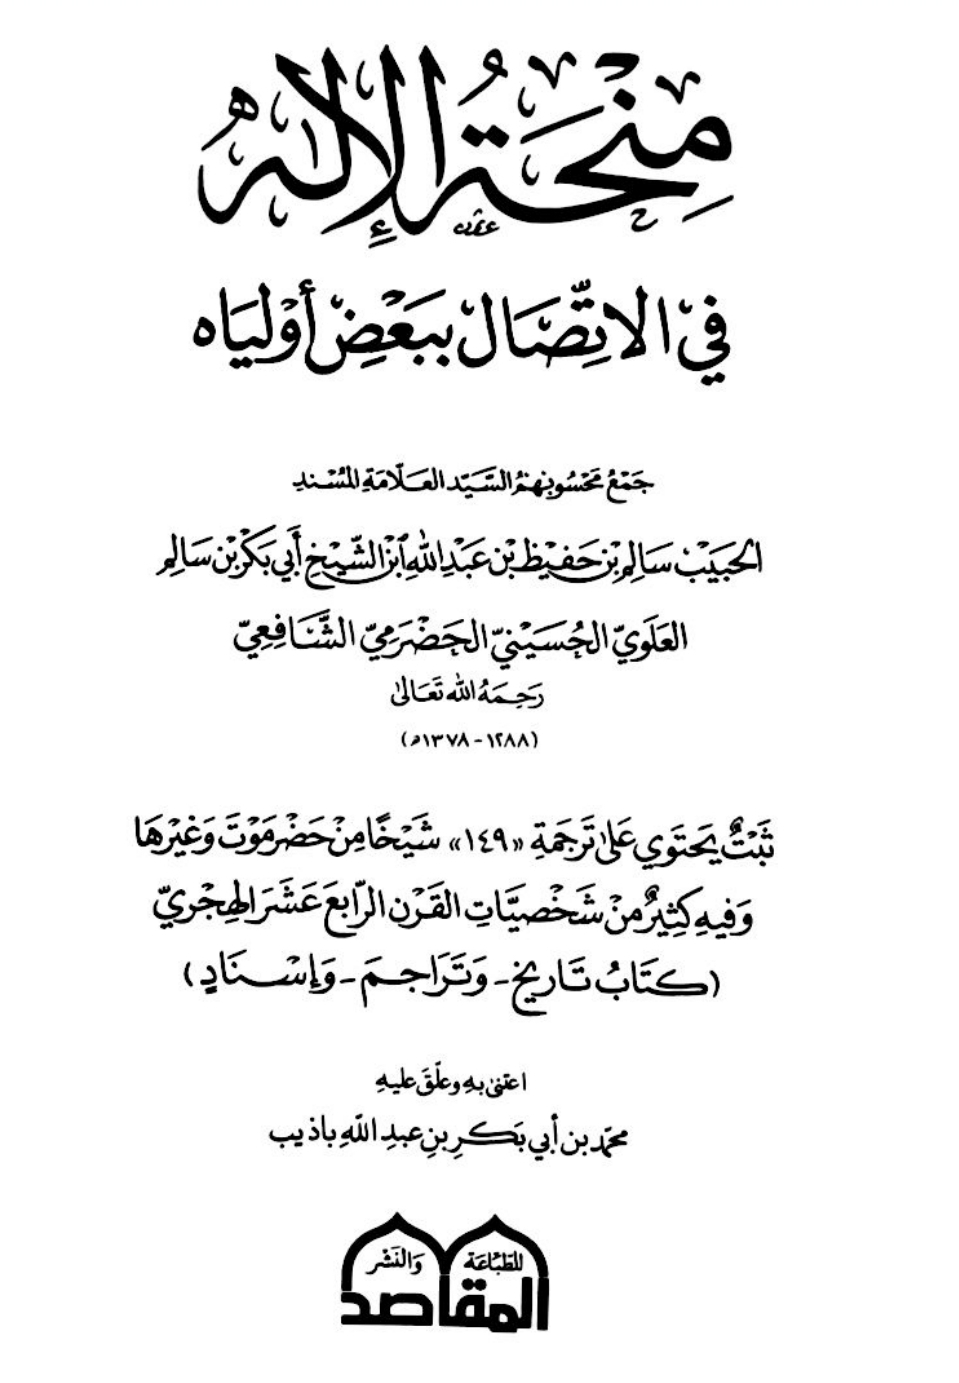 مِنْحَةُ الإِلٰهِ
فِيْ الاتِّصَالْ بِبَعْضِ أَوْلِيَاه
جَمْعُ مَحْسُوبِهِمُ السَّيِّد العَلَّامَةِ المُسْنِدِ
الحَبِيْبْ سَالِمْ بِنْ حَفِيْظ بْن عَبْدِ اللهِ ابْنِ الشَّيْخِ أَبِي بَكْرْ بِنْ سَالِمْ
العَلَوِيّ الحُسَيْنِيّ الحَضْرَمِيّ الشَّافِعِيّ
رَحِمَهُ اللهُ تَعَالىٰ
(١٢٨٨ - ١٣٧٨هـ)
ثَبْتٌ يَحْتَوِي عَلىٰ تَرْجَمَةِ «١٤٩» شَيْخًا مِنْ حَضْرَمَوْتَ وَغَيْرِهَا
وَفِيهِ كَثِيْرٌ مِنْ شَخْصِيَّاتِ القَرْنِ الرَّابِعَ عَشَرَ الهِجْرِيّ
(كِتَابُ تَارِيخْ - وَتَرَاجِمَ - وَإِسْنَادٍ)
اعتنىٰ بِهِ وعلّقَ عليهِ
محمّد بن أبي بَكرِ بنِ عبدِ اللهِ باذيب
للطِّبَاعَة وَالنَّشْر
المقاصد